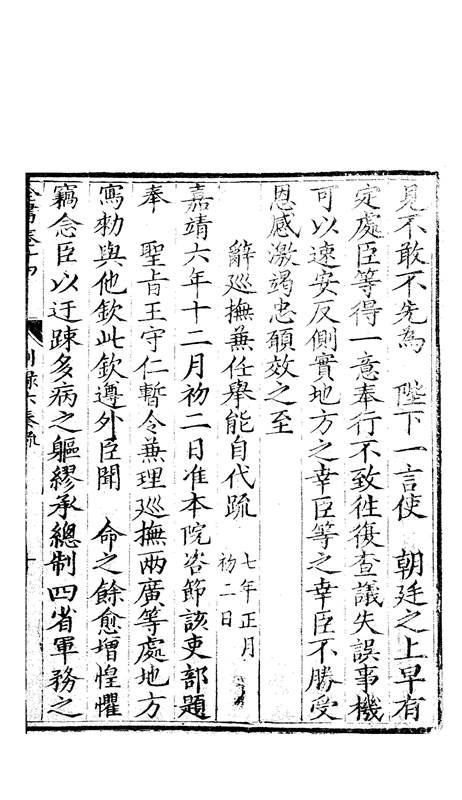 見不敢不先為　陛下一言使　朝廷之上早有
定處臣等得一意奉行不致徃復查議失誤事機
可以速安反側實地方之幸臣等之幸臣不勝受
恩感激竭忠願效之至
辭巡撫兼任舉能自代疏　七年正月初二日
嘉靖六年十二月初二日准本院咨節該吏部題
奉　聖旨王守仁暫令兼理巡撫兩廣等處地方
寫勑與他欽此欽遵外臣聞　命之餘愈增惶懼
竊念臣以迂踈多病之軀繆承總制四省軍務之
全書卷十四　別錄六奏疏　十